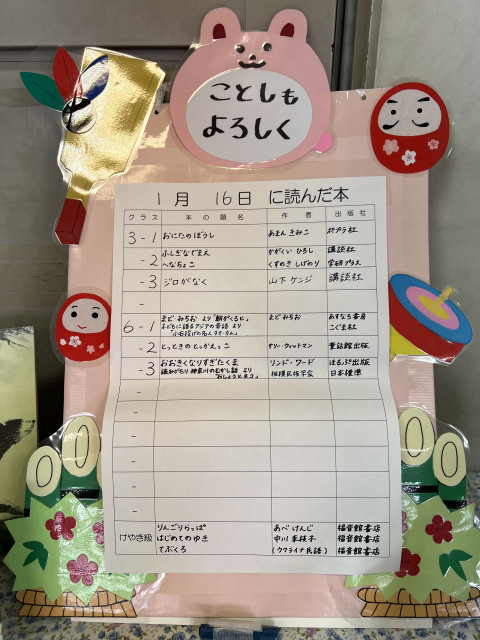 ことしも
よろしく
1月 16日 に読んだ本
クラス 本の題名 作者 出版社
3-1 おにたのぼうし あまんきみこ ポプラ社
-2 ふしぎなでまえ かがくい ひろし 講談社
へなちょこ くすのき しげのり 学研プラス
-3 ジロがなく 山下 ケンジ 講談社
-
6-1 まど・みちお より「朝がくると」 まど みちお あすなろ書房
子どもに語るアジアの昔話 より こぐま社
-2 とっときのとっかえっこ サリー・ウィットマン 童話館出版
-3 おおきくなりすぎたくま リンド・ワード ほるぷ出版
読みがたり 神奈川のむかし話 より 相模民俗学会 日本標準
「おしょうとネコ」
-
-
-
-
-
けやき級 りんごりらっぱ あべ けんじ 福音館書店
はじめてのゆき 中川 李枝子 福音館書店
てぶくろ (ウクライナ民話) 福音館書店